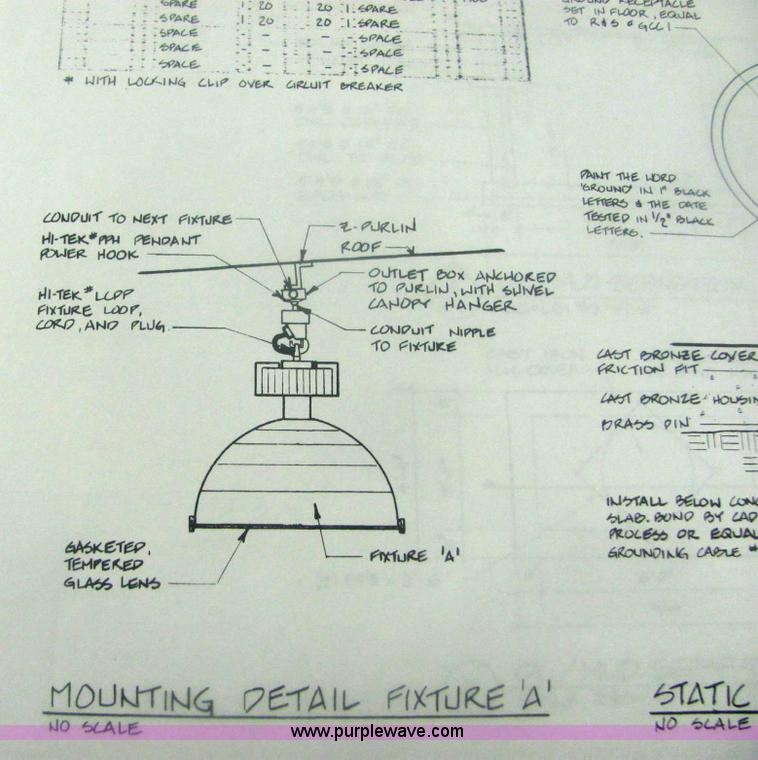 SPARE 1 20 20 1 SPARE
SPARE 1 20 20 1 SPARE
SPACE - - SPACE
SPACE - - SPACE
SPACE - - SPACE
* WITH LOCKING CLIP OVER CIRCUIT BREAKER
GROUND RECEPTACLE
SET IN FLOOR, EQUAL
TO R&S # GCC1
PAINT THE WORD
'GROUND' IN 1" BLACK
LETTERS & THE DATE
TESTED IN 1/2" BLACK
LETTERS.
CONDUIT TO NEXT FIXTURE
HI-TEK # PPH PENDANT
POWER HOOK
HI-TEK # LCPP
FIXTURE LOOP,
CORD, AND PLUG.
Z-PURLIN
ROOF
OUTLET BOX ANCHORED
TO PURLIN, WITH SWIVEL
CANOPY HANGER
CONDUIT NIPPLE
TO FIXTURE
GASKETED,
TEMPERED
GLASS LENS
FIXTURE 'A'
CAST BRONZE COVER
FRICTION FIT
CAST BRONZE HOUSIN
BRASS PIN
INSTALL BELOW CONC
SLAB. BOND BY CAD
PROCESS OR EQUAL
GROUNDING CABLE #
MOUNTING DETAIL FIXTURE 'A'
NO SCALE
STATIC
NO SCALE
www.purplewave.com